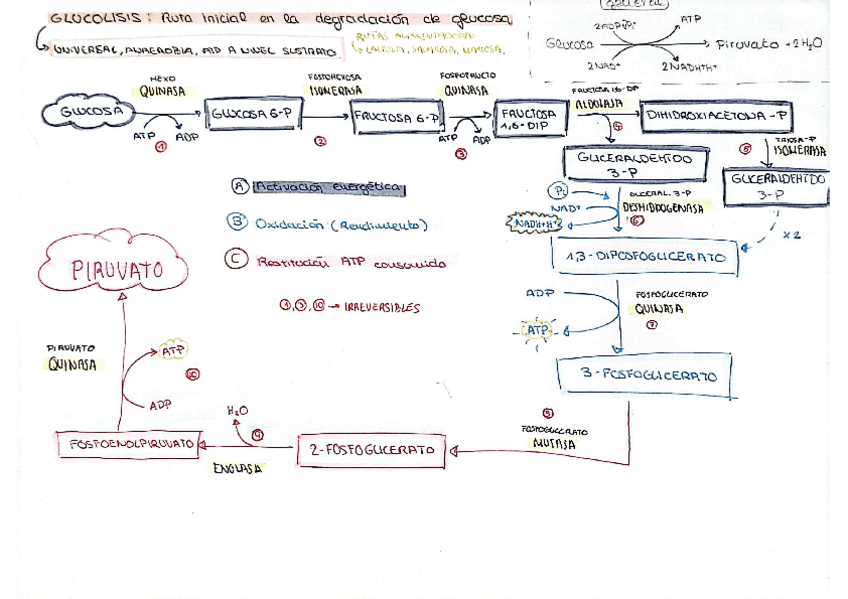 GLUCOLISIS: Ruta inicial en la degradación de glucosa
UNIVERSAL, ANAEROBIA, ATP A NIVEL SUSTRATO
RUTAS
general
2ADP+2Pi
ATP
Glucosa
Piruvato + 2H₂O
2NAD+
2NADH+H+
HEXO
QUINASA
FOSFOHEXOSA
ISOMERASA
FOSFOFRUCTO
QUINASA
FRUCTOSA 1,6-DP
ALDOLASA
GLUCOSA
GLUCOSA 6-P
FRUCTOSA 6-P
FRUCTOSA
1,6-DIP
DIHIDROXIACETONA-P
ATP
ADP
①
②
ATP
ADP
③
④
⑤
TRIOSA-P
ISOMERASA
GLICERALDEHIDO
3-P
GLICERALDEHIDO
3-P
A Activación energética
Pi
GLICERAL. 3-P
DESHIDROGENASA
NAD+
NADH+H+
⑥
B Oxidación (Rendimiento)
X2
C Restitución ATP consumido
1,3-DIPFOSFOGLICERATO
PIRUVATO
①,③,⑩ → IRREVERSIBLES
ADP
FOSFOGLICERATO
QUINASA
⑦
ATP
PIRUVATO
QUINASA
ATP
⑩
ADP
3-FOSFOGLICERATO
⑧
FOSFOGLICERATO
MUTASA
H₂O
⑨
FOSFOENOLPIRUVATO
2-FOSFOGLICERATO
ENOLASA